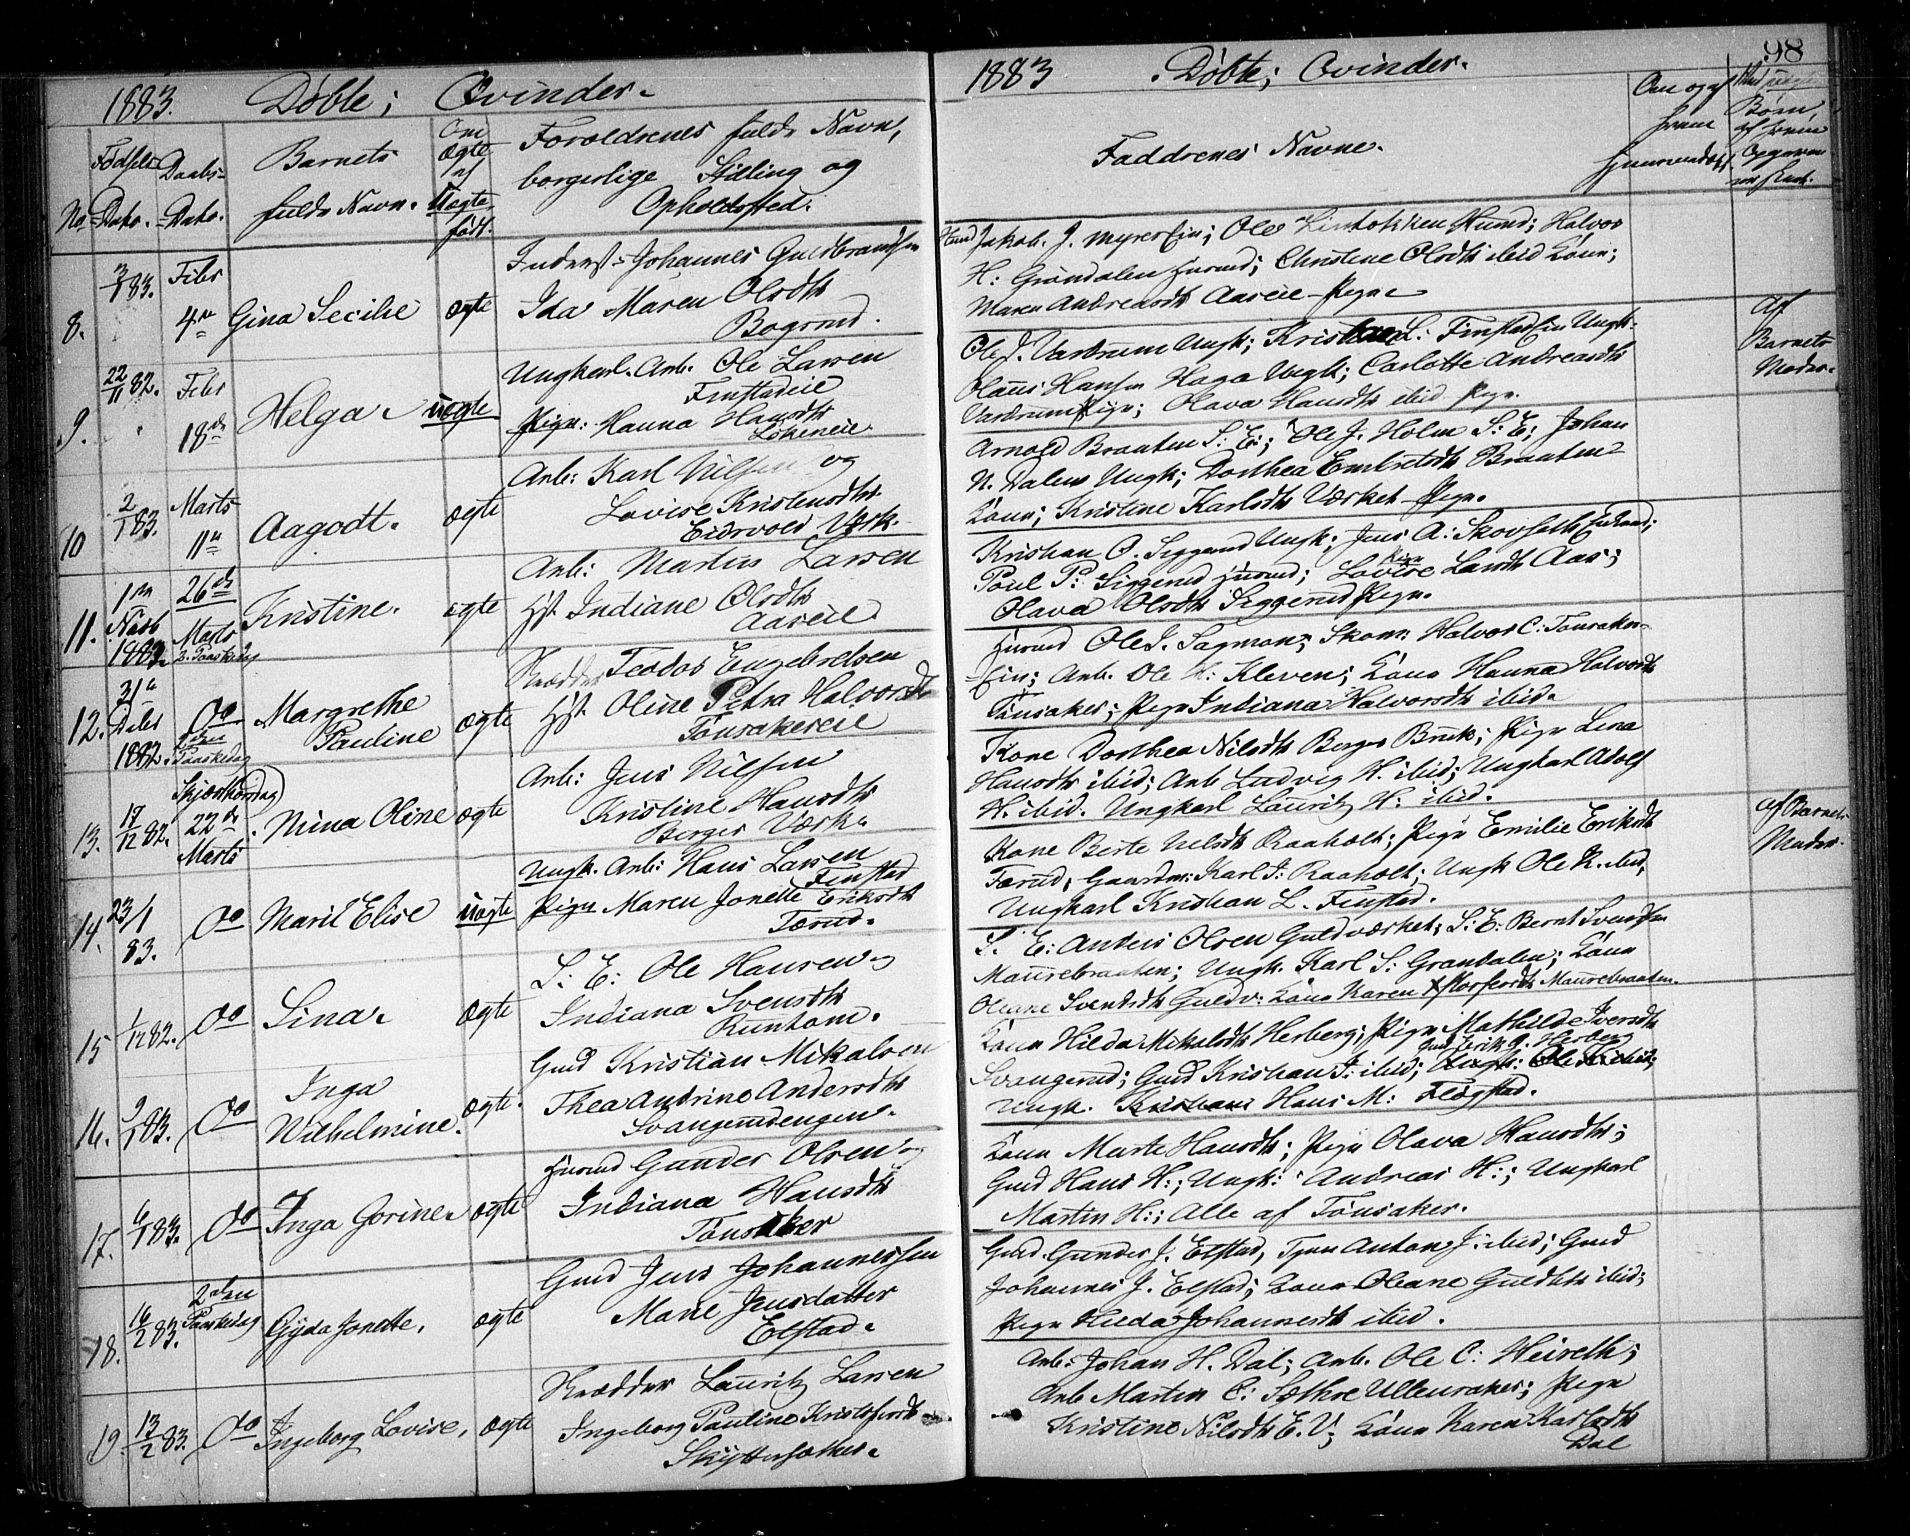 1883. Døbte; Qvinder.
No
Fødsels-
Dato.
Daabs-
Dato.
Barnets
fulde Navn.
Om
Ægte
el
Uægte
født.
Forældrenes fulde Navn,
borgerlige Stilling og
Opholdssted.
8.
3/1 83.
Febr
4de
Gina Secilie
ægte
Inderst Johannes Guldbrandsen
Ida Maren Olsdtr
Bøgerud.
9.
22/11 82.
Febr
18de
Helga.
uægte
Ungkarl. Arb. Ole Larsen
Finstadeie
Pige: Hanna Hansdtr
10
2/1 83.
Marts
11te
Aagodt.
ægte
Arb: Karl Nilsen og
Lovise Kristensdtr
Eidsvold Værk.
11.
1ste
Novb
1882.
26de
Marts
2. Paaskedag
Kristine.
ægte
Arb: Martin Larsen
Hst Indiane Olsdtr
Aaseie
12.
31te
Decbr
1882.
Do
2den
Paaskedag
Margrethe
Pauline
ægte
Skrædder Teodor Engebretsen
Hst Oline Petra Halvorsdtr
Tønsakereie
13.
17/12 82.
Skjærthorsdag
22de
Marts
Mina Oline
ægte
Arb: Jens Nilsen
Kristine Hansdtr
Berger Værk.
14.
23/1
83.
Do
Maril Elise
uægte
Ungk. Arb: Hans Larsen
Finstad
Pige Maren Jonette Eriksdtr
Tærud.
15
1/12 82.
Do
Sina.
ægte
S: E: Ole Hansen og
Indiana Svensdtr
Runhom.
16.
9/1 83.
Do
Inga
Wilhelmine.
ægte.
Gmd Kristian Mikalsen
Thea Andrine Andersdtr
Svangerudengen.
17.
6/1 83.
Do
Inga Gorine.
ægte
Husmd Gunder Olsen og
Indiana Hansdtr
Tønsaker
18.
16/2 83.
2den
Paaskedag
Gyda Jonette.
ægte
Gmd Jens Johannessen
Marie Jensdatter
Elstad.
19.
13/2 83.
Do
Ingeborg Lovise.
ægte
Skrædder Lauritz Larsen
Ingeborg Pauline Kristofersdtr
Skytterholter.
1883 Døbte; Qvinder.
98
Faddrenes Navne.
Om og af
hvem
hjemmedøbt.
Ved uægte
Børn,
af hvem
Opgaven
er skeet.
Jakob. J. Myrer Ein; Ole Hund; Halvor
H: Grøndalen Husmd; Christine Olsdtr ibid Kone;
Maren Andreasdtr Aaseie Pige
Ole J. Vardrum Ungk; Kristian L: Finstad Ein Ungk.
Olaus Hansen Haga Ungk; Carlotte Andreasdtr
Vardrum Pige; Olava Hansdtr ibid Pige.
Af
Barnets
Moder.
Arnold Braaten S: E:; Ole J. Holm S: E; Johan
N. Dalen Ungk; Dorthea Embretsdtr Braaten
Kone; Kristine Karlsdtr Værket Pige.
Kristian O. Siggerud Ungk; Jens A: Skovseth
Poul P: Siggerud Husmd; Pige Lovise Larsdtr Aas;
Olava Olsdtr Siggerud Pige.
Husmd Ole J. Sagmoen; Skom: Halvor C: Tønsaker-
Ein; Arb. Ole H: Kleven; Kone Hanna Halvorsdtr
Tønsaker; Pige Indiana Halvorsdtr ibid.
Kone Dorthea Nilsdtr Berger Bruk; Pige Lena
Hansdtr ibid; Arb Ludvig H. ibid; Ungkarl Adolf
H. ibid. Ungkarl Lauritz H: ibid.
Kone Berte Nilsdtr Raaholt; Pige Emilie Eriksdtr
Tærud; Gaardm: Karl J: Raaholt; Ungk Ole K. ibid,
Ungkarl Kristian L. Finstad.
af Barnets
Moder.
S. E: Anders Olsen Guldværket; S: E: Bernt Svendsen
Maurebraaten; Ungk. Karl S: Grandalen; Kone
Oleane Svendsdtr Guldv: Kone Karen Maurebraaten.
Kone Hilda Mikalsdtr Herberg; Pige Mathilde Iversdtr
Gmd Erik J. Herberg
Svangerud; Gmd Kristian J: ibid;
Ungk. Hans M: Flogstad.
Kone Marte Hansdtr; Pige Olava Hansdtr;
Gmd Hans H:; Ungk: Andreas H:; Ungkarl
Martin H:; Alle af Tønsaker.
Gmd. Gunder J. Elstad, Tjen Anton J: ibid; Gmd
Johannes J. Elstad; Kone Oleane Guldbr ibid;
Pige Hilda Johannesdtr ibid.
Arb: Johan H. Dal; Arb. Ole C: Heireth;
Arb Martin C: Sæthre Ullensaker; Pige
Kristine Nilsdtr E. V; Kone Karen Karlsdtr
Dal